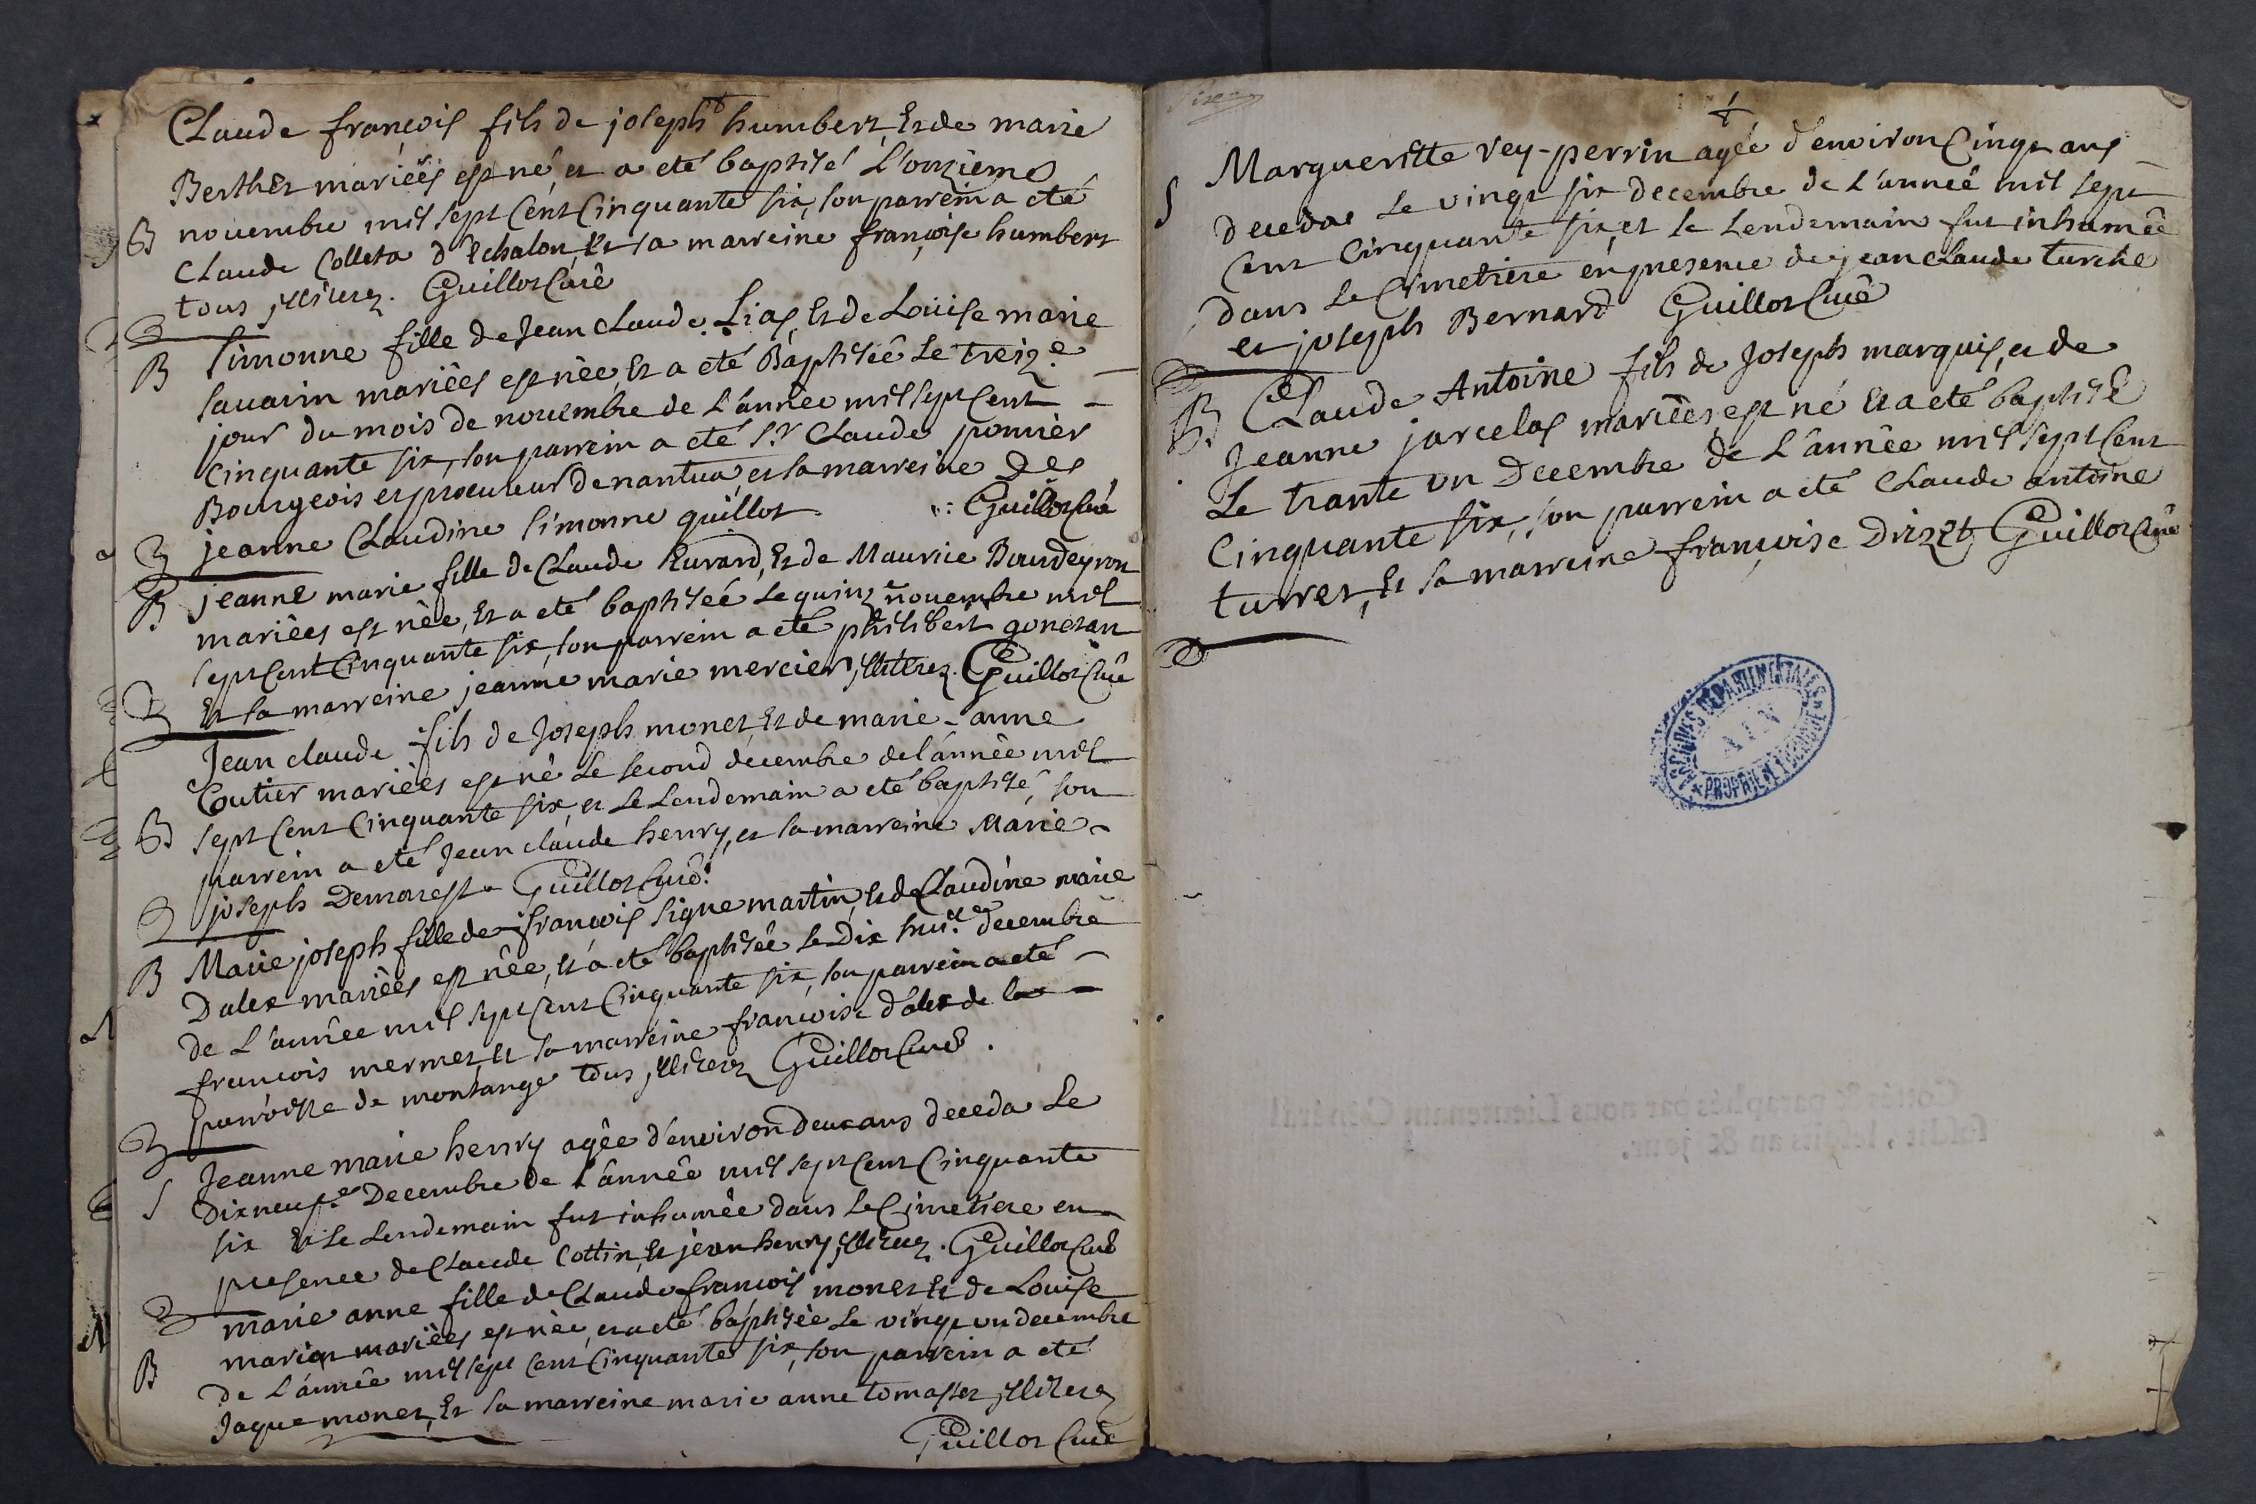 Claude françois fils de joseph humbert, Et de marie
Berthet mariéés est né, et a eté baptisé L'onzieme
B novembre mil sept Cent Cinquante six, son parrein a eté
Claude Colleta d'Echalon, Et sa marreine françoise humbert
tous illiterez. Guillot Curé
B Simonne fille de Jean Claude Lias, Et de Loüise marie
Savarin mariéés est née, Et a eté Baptisée Le treize
jour du mois de novembre de L'année mil sept Cent
Cinquante six, son parrein a eté S.r Claude ponnier
Bourgeois et procureur de nantua, et sa marreine Dle
jeanne Claudine Simonne guillot Guillot Curé
B jeanne marie fille de Claude Euvrard, Et de Maurice Bourdeyron
mariéés est née, Et a eté baptisée Le quinz novembre mil
sept Cent Cinquante six, son parrein a eté philibert gonetan
Et sa marreine jeanne marie mercier, illiterez. Guillot Curé
Jean claude fils de Joseph monet, Et de marie-anne
Coutier mariéés est né Le second decembre de l'année mil
B sept Cent Cinquante six, et Le Lendemain a eté baptisé, son
parrein a eté Jean claude henry, et sa marreine Marie
joseph Demorest Guillot Curé.
B Marie joseph fille de françois signe martin, Et de Claudine marie
Dalex mariéés est née, Et a eté baptisée Le Dix huit.e decembre
de L'année mil sept Cent Cinquante six, son parrein a eté
françois mermet, Et sa marreine françoise dalex de la
parroisse de montange tous illiterez Guillot Curé.
Jeanne marie henry agée d'environ Deux ans deceda Le
S Dix neuf.e Decembre de L'année mil sept Cent Cinquante
six Et Le Lendemain fut inhumée dans Le Cimetiere en
presence de Claude Cottin, Et jean henry, illiterez. Guillot Curé
marie anne fille de Claude françois monet Et de Louise
marion mariéés est née, et a eté baptisée Le vingt un decembre
B de L'année mil sept Cent Cinquante six, son parrein a eté
Jaque monet, Et sa marreine marie anne tomasset, illiterez
Guillot Curé
Margueritte rey-perrin agée d'environ Cinq ans
S deceda Le vingt six decembre de L'année mil sept
Cent Cinquante six, et Le Lendemain fut inhumée
dans Le Cimetiere en presence de jean Claude turche
et joseph Bernard Guillot Curé
B Claude Antoine fils de Joseph marquis, et de
Jeanne jarcelas mariéés, est né Et a eté baptisé
Le trante un Decembre de L'année mil sept Cent
Cinquante six, son parrein a eté Claude antoine
turret, Et sa marreine françoise Dirzet, Guillot Curé
ARCHIVES DÉPARTEMENTALES
AIN
PROPRIÉTÉ PUBLIQUE